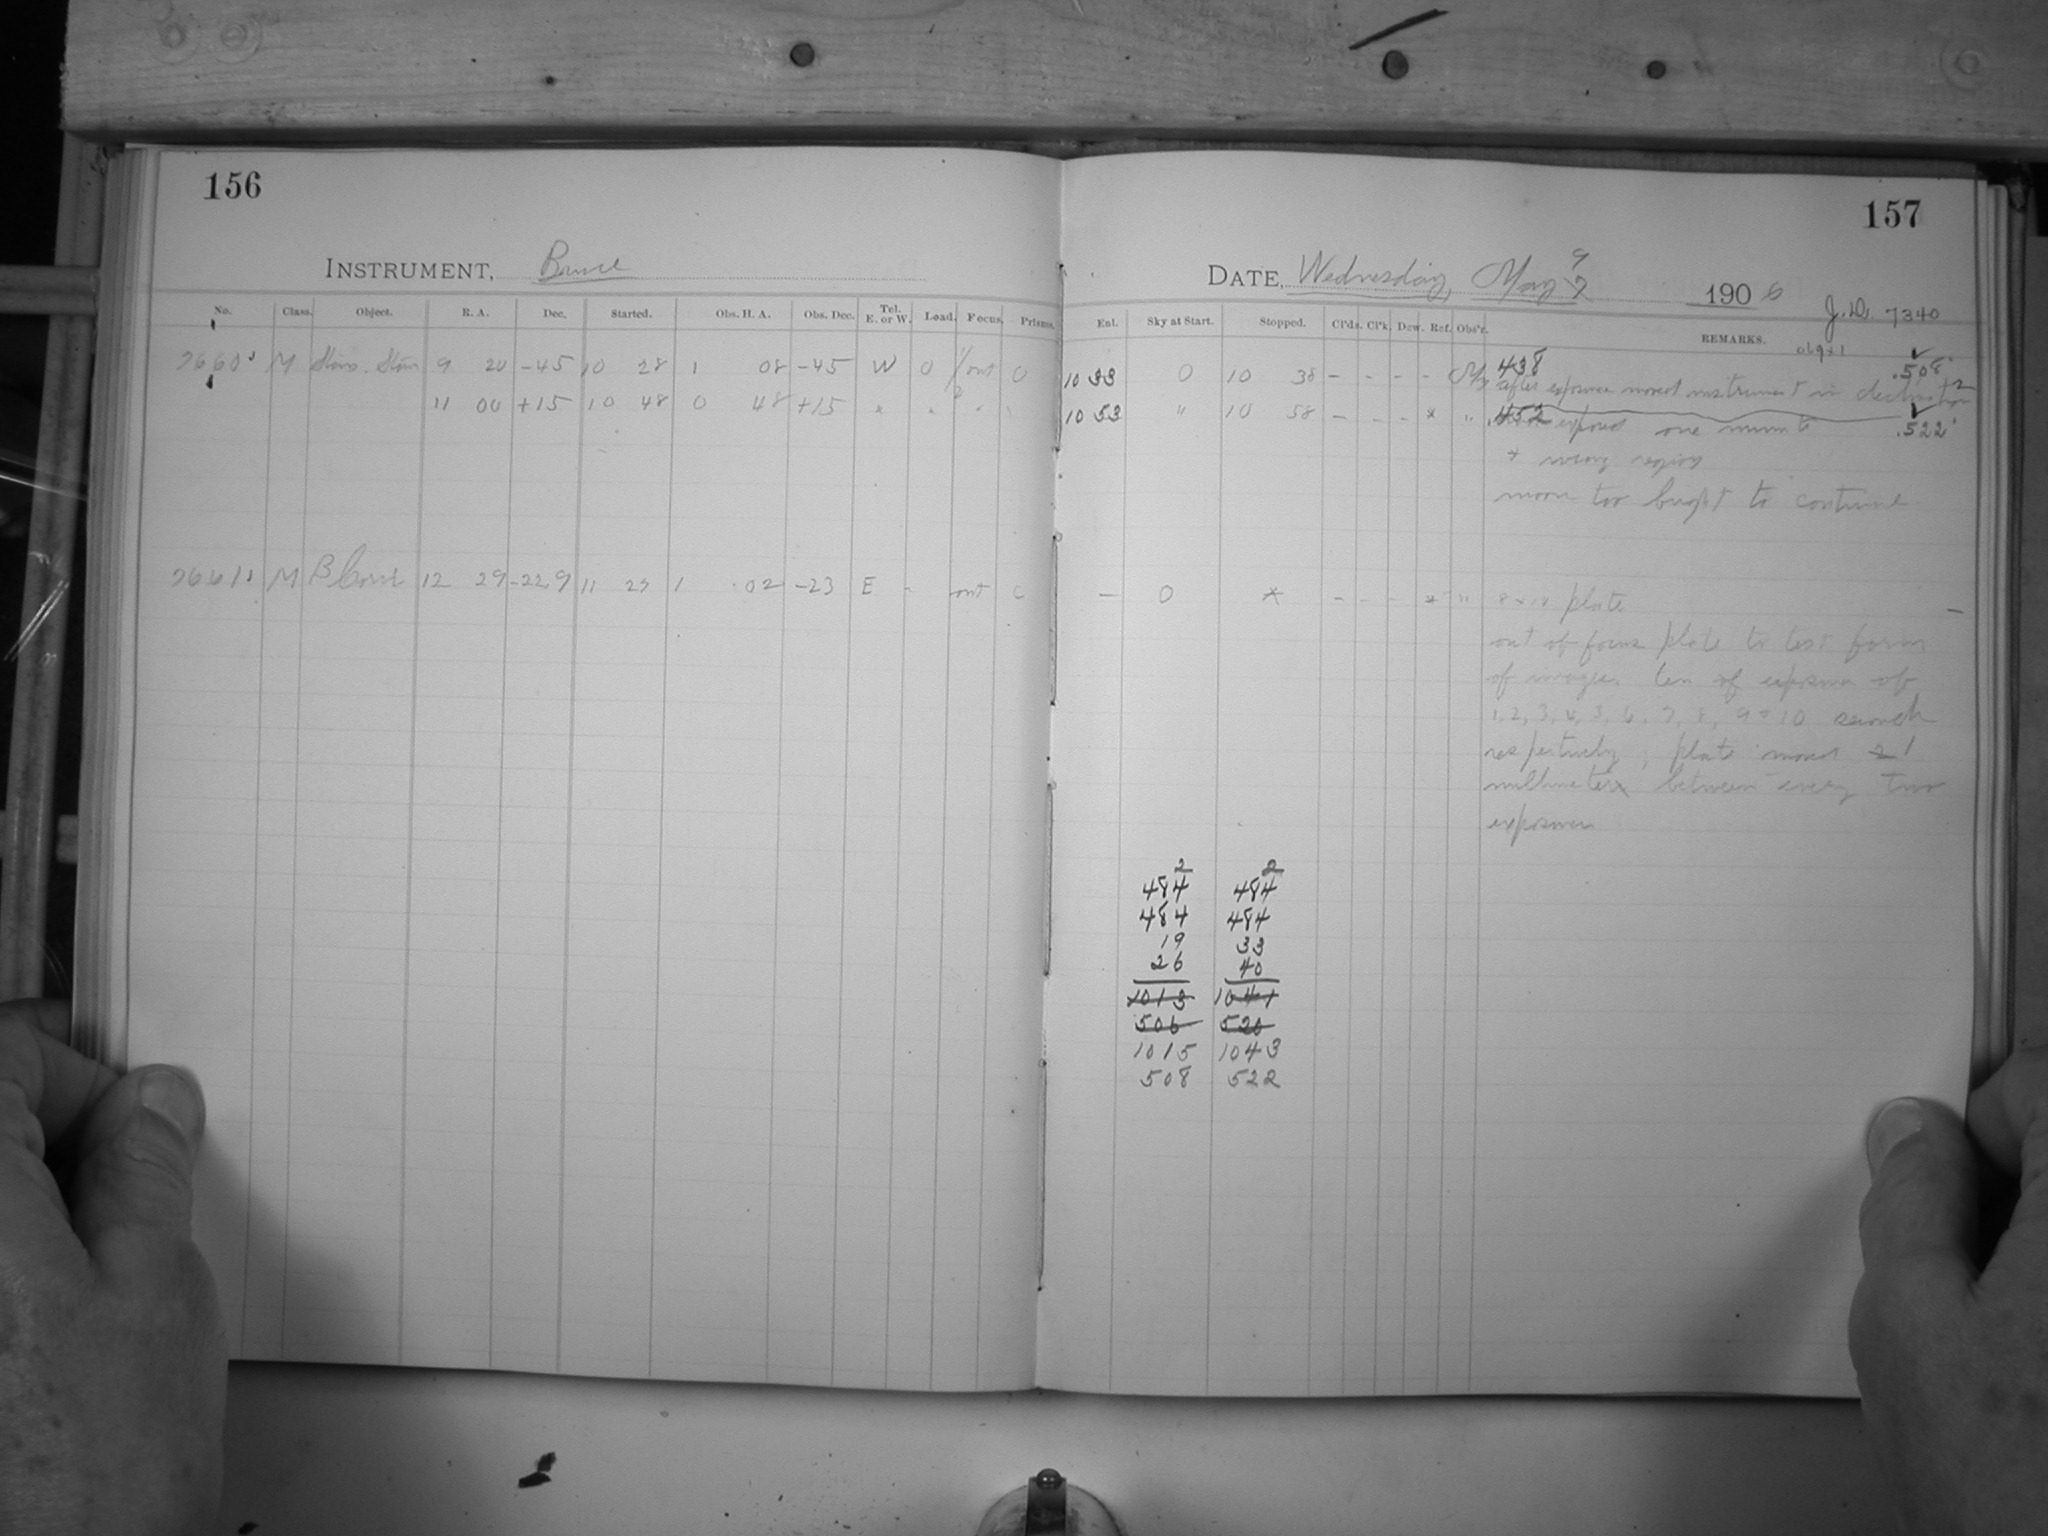 156
INSTRUMENT, Bruce
No. Class. Object. R. A. Dec. Started. Obs. H. A. Obs. Dec. Tel. E. or W. Load. Focus. Prisms.
M 9 20 -45 10 28 1 08 -45 W 0 out 0
11 00 +15 10 48 0 48 +15
M 12 29 -22.9 11 1 02 -23 E - out
157
DATE, Wednesday, May 9 1906
J.D. 7340
Enl. Sky at Start. Stopped. Cl'ds. Cl'k. Dew. Ref. Obs'r. REMARKS.
10 33 0 10 38 - - - - 438 .508
after exposure moved instrument in declination
10 53 " 10 58 - - - * " 452 .522
exposed one minute
* wrong region
moon too bright to continue
- 0 * - - - * " 8 x 10 plate
out of focus plate to test form
of images ten of exposures of
1, 2, 3, 4, 5, 6, 7, 8, 9 + 10 seconds
respectively; plate moved 2 1
millimeters between every two
exposures
2 2
484 484
484 484
19 33
26 40
1013 1041
506 520
1015 1043
508 522